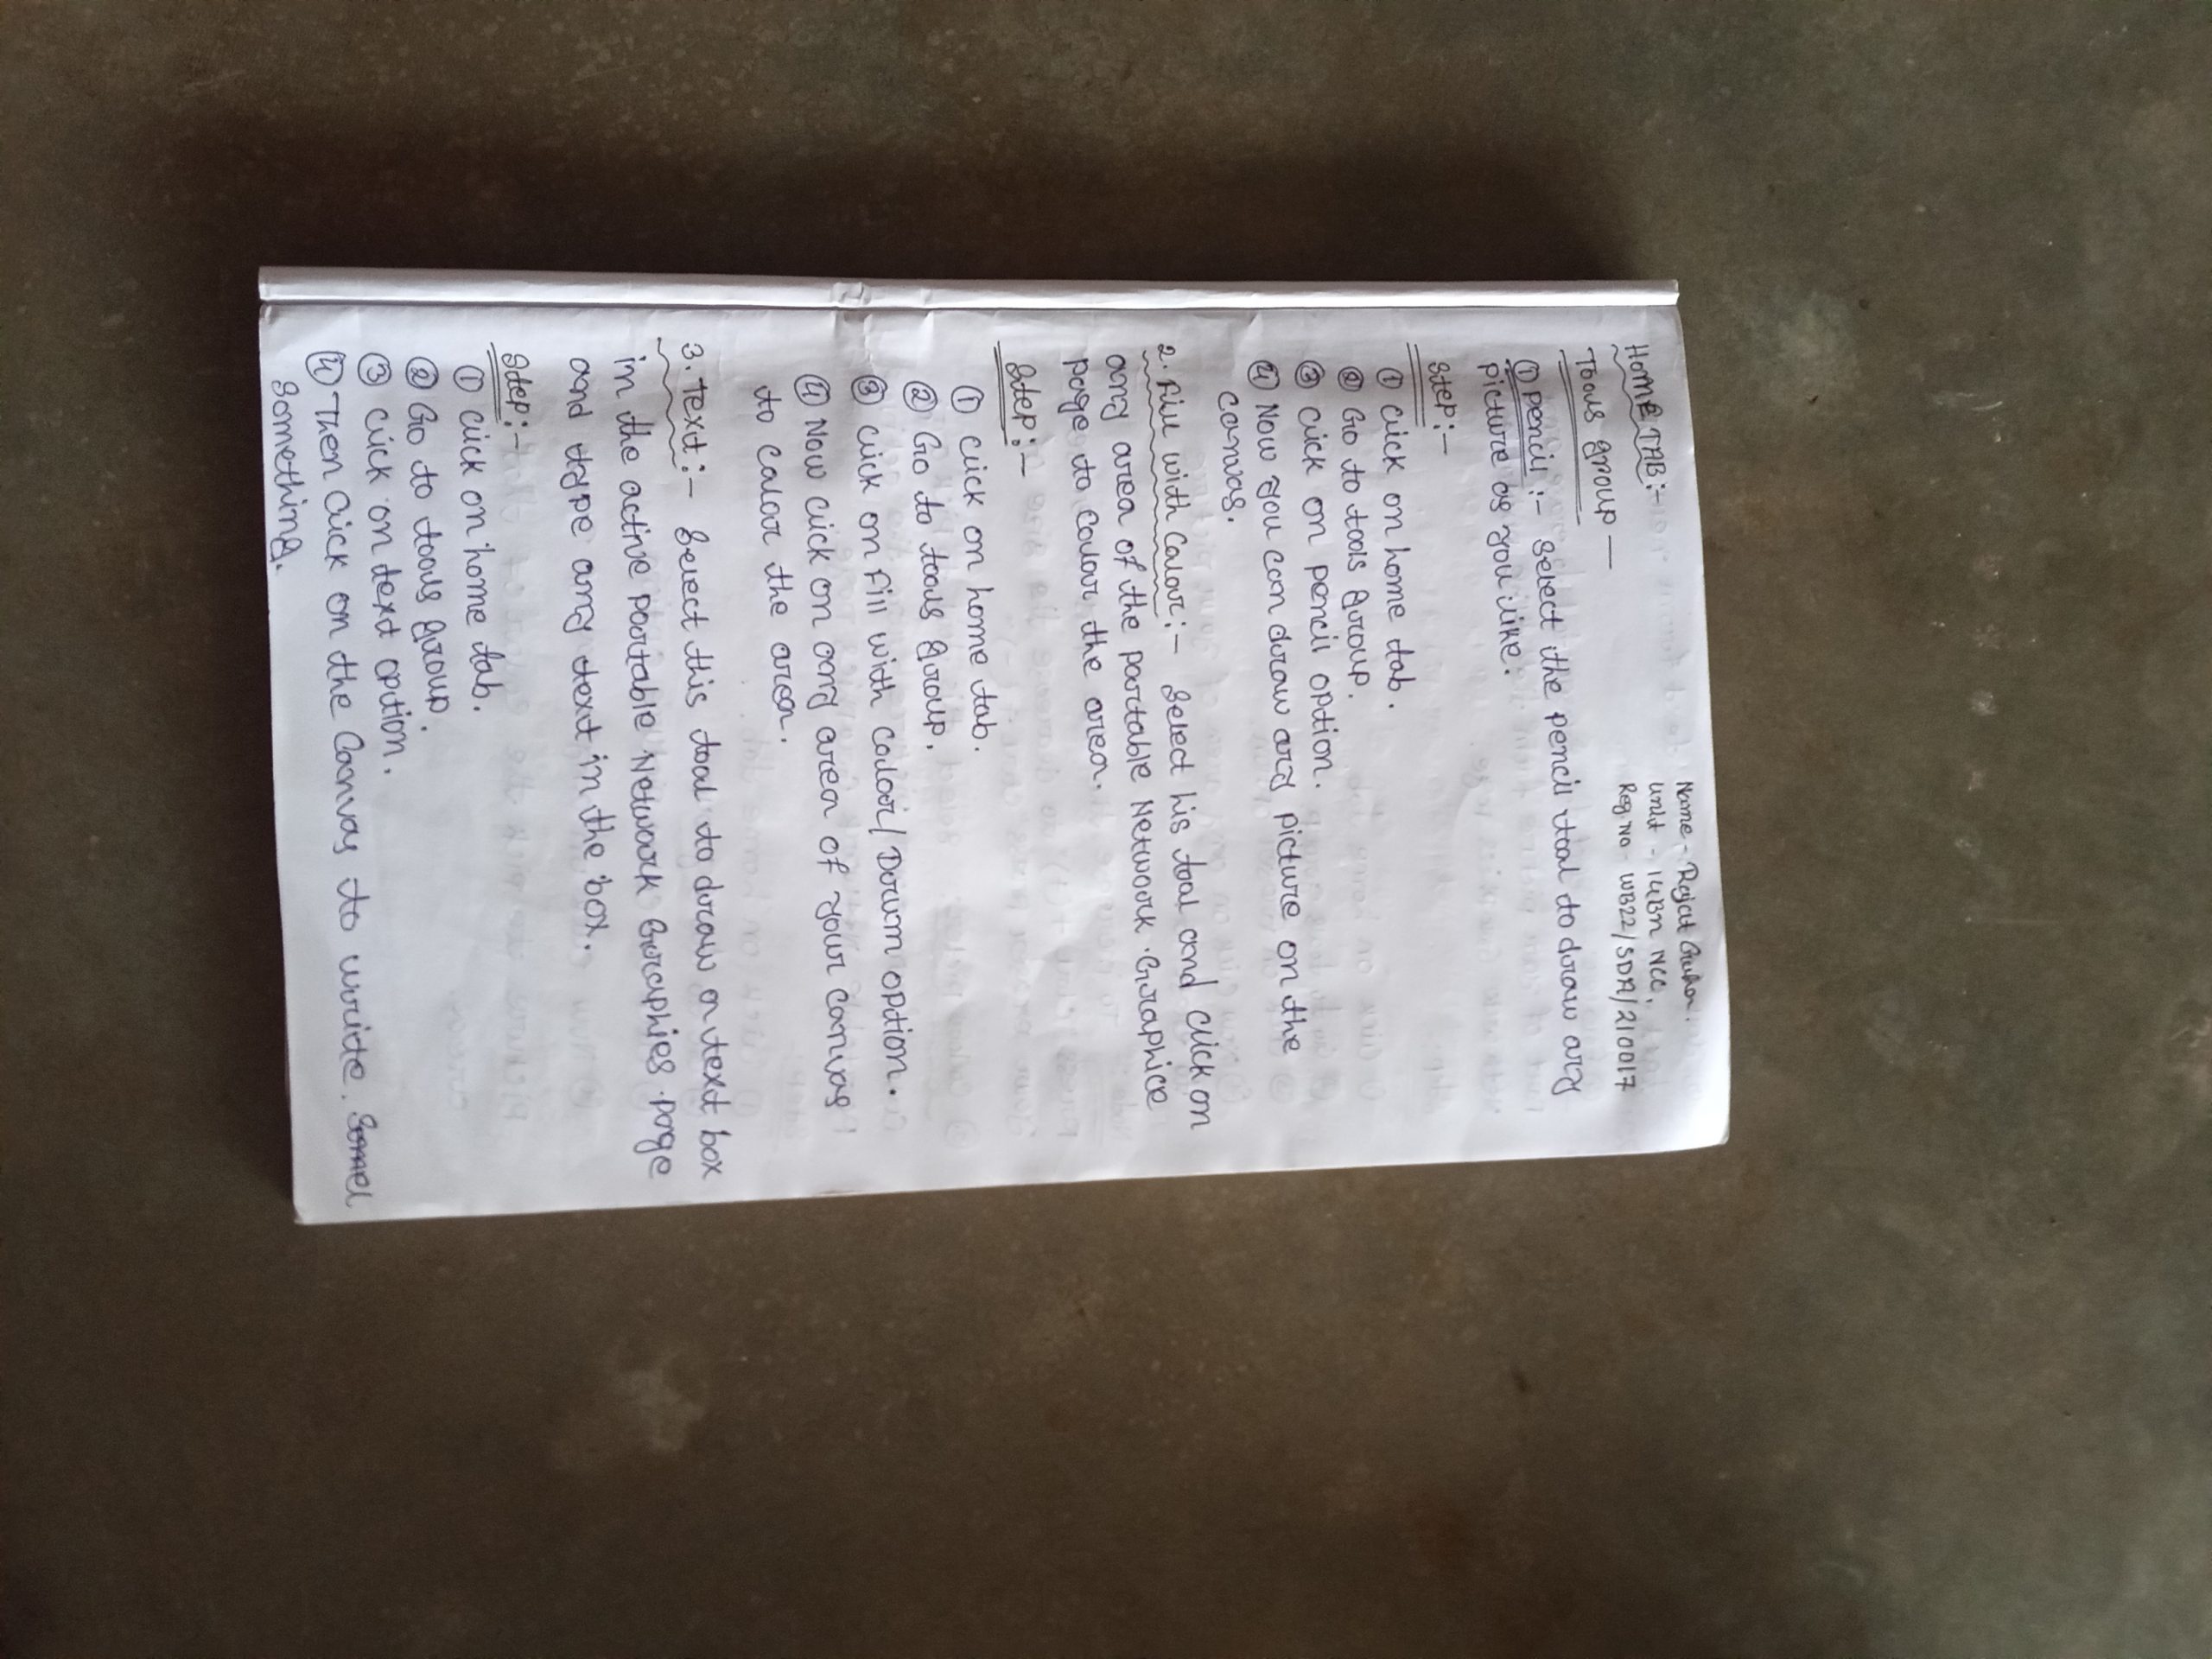 Name - Rajat Guha.
Unit - 14Bn NCC.
Reg No - WB22/SDA/210017
HOME TAB:-
Tools group —
① Pencil :- Select the pencil tool to draw any
picture as you like.
Step:-
① Click on home tab.
② Go to tools group.
③ Click on pencil option.
④ Now you can draw any picture on the
canvas.
2. Fill with Colour :- Select his tool and click on
any area of the portable Network Graphice
page to colour the area.
Step:-
① Click on home tab.
② Go to tools group.
③ Click on Fill with Color/Drum option.
④ Now click on any area of your canvas
to color the area.
3. Text :- Select this tool to draw a text box
in the active portable Network Graphies page
and type any text in the box.
Step:-
① Click on home tab.
② Go to tools group.
③ Click on text option.
④ Then Click on the Canvas to write.
Something.